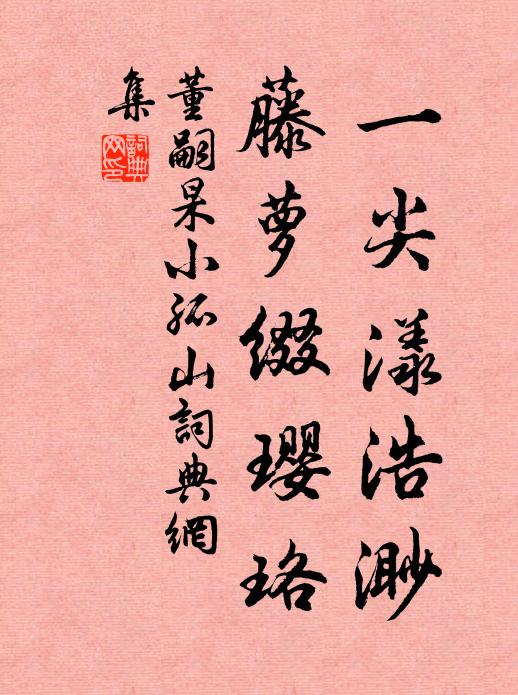 一尖漾浩渺
藤萝缀璎珞
董嗣杲小孤山詞典網
集
詞典
网印